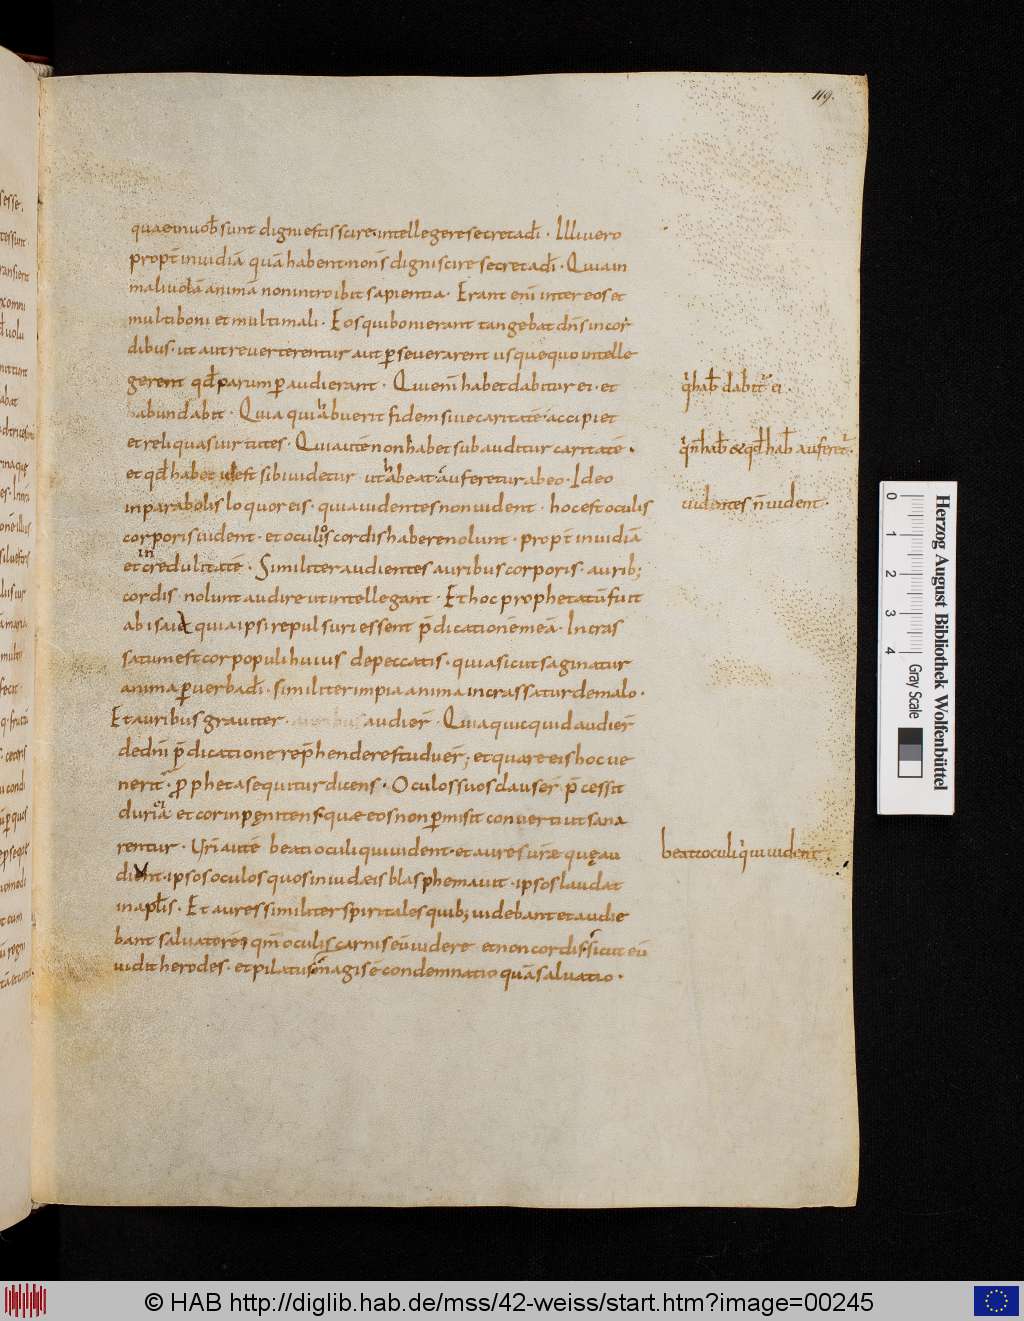 119.
quae in uob̄ sunt digni estis scire & intellegere secreta dī · Illi uero
propt̄ inuidiā quā habent· nonš digni scire secreta dī · Quia in
maliuolā animā non introibit sapientia · Erant enī inter eos et
multi boni et multi mali · Eos qui boni erant tangebat dn̄s in cor
dibus· ut aut reuerterentur aut ꝑseuerarent usque quo intelle
gerent qđ parum ꝑaudierant · Qui enī habet dabitur ei · et
q̇ hab̄ dabit᷑ ei ·
habundabit · Quia qui habuerit fidem siue caritatē accipiet
et reliquas uirtutes · Qui autē non habet subauditur caritatē ·
q̇ n̄ hab̄ & qđ hab̄ auferet᷑ ·
et qđ habet uel est sibi uidetur ut habeat auferetur ab eo · Ideo
in parabolis loquor eis · quia uidentes non uident · hoc est oculis
uidentes n̄ uident ·
corporis uident · et oculos cordis habere nolunt · propt̄ inuidiā
in
et credulitatē · Similiter audientes auribus corporis · aurib;
cordis nolunt audire ut intellegant · Et hoc prophetatū fuit
ab isaia quia ipsi repulsuri essent p̄dicationē meā · Incras
satum est cor populi huius de peccatis · quia sicut saginatur
anima ꝑ uerba dī · similiter impia anima incrassatur de malo ·
Et auribus grauiter · auribus audier̄ · Quia quicquid audier̄
de dn̄i p̄dicatione rep̄hendere studuer̄; et quare eis hoc ue
nerit · ꝓpheta sequitur dicens · Oculos suos clauser̄ p̄cessit
duritia et cor inpęnitens· quae eos non ꝑmisit conuerti ut sana
rentur · Ur̄i autē beati oculi qui uident· et aures ur̄ae quę au
beati oculi q̇ uident
diunt · ipsos oculos quos in iudaeis blasphemauit · ipsos laudat
in apl̄is · Et aures similiter spiritales quib; uidebant et audie
bant saluatorē · qm̄ oculis carnis eū uidere et non cordis· sicut eū
uidit herodes · et pilatus magis ē condemnatio quā saluatio ·
Herzog August Bibliothek Wolfenbüttel
0 1 2 3 4
Gray Scale
© HAB http://diglib.hab.de/mss/42-weiss/start.htm?image=00245